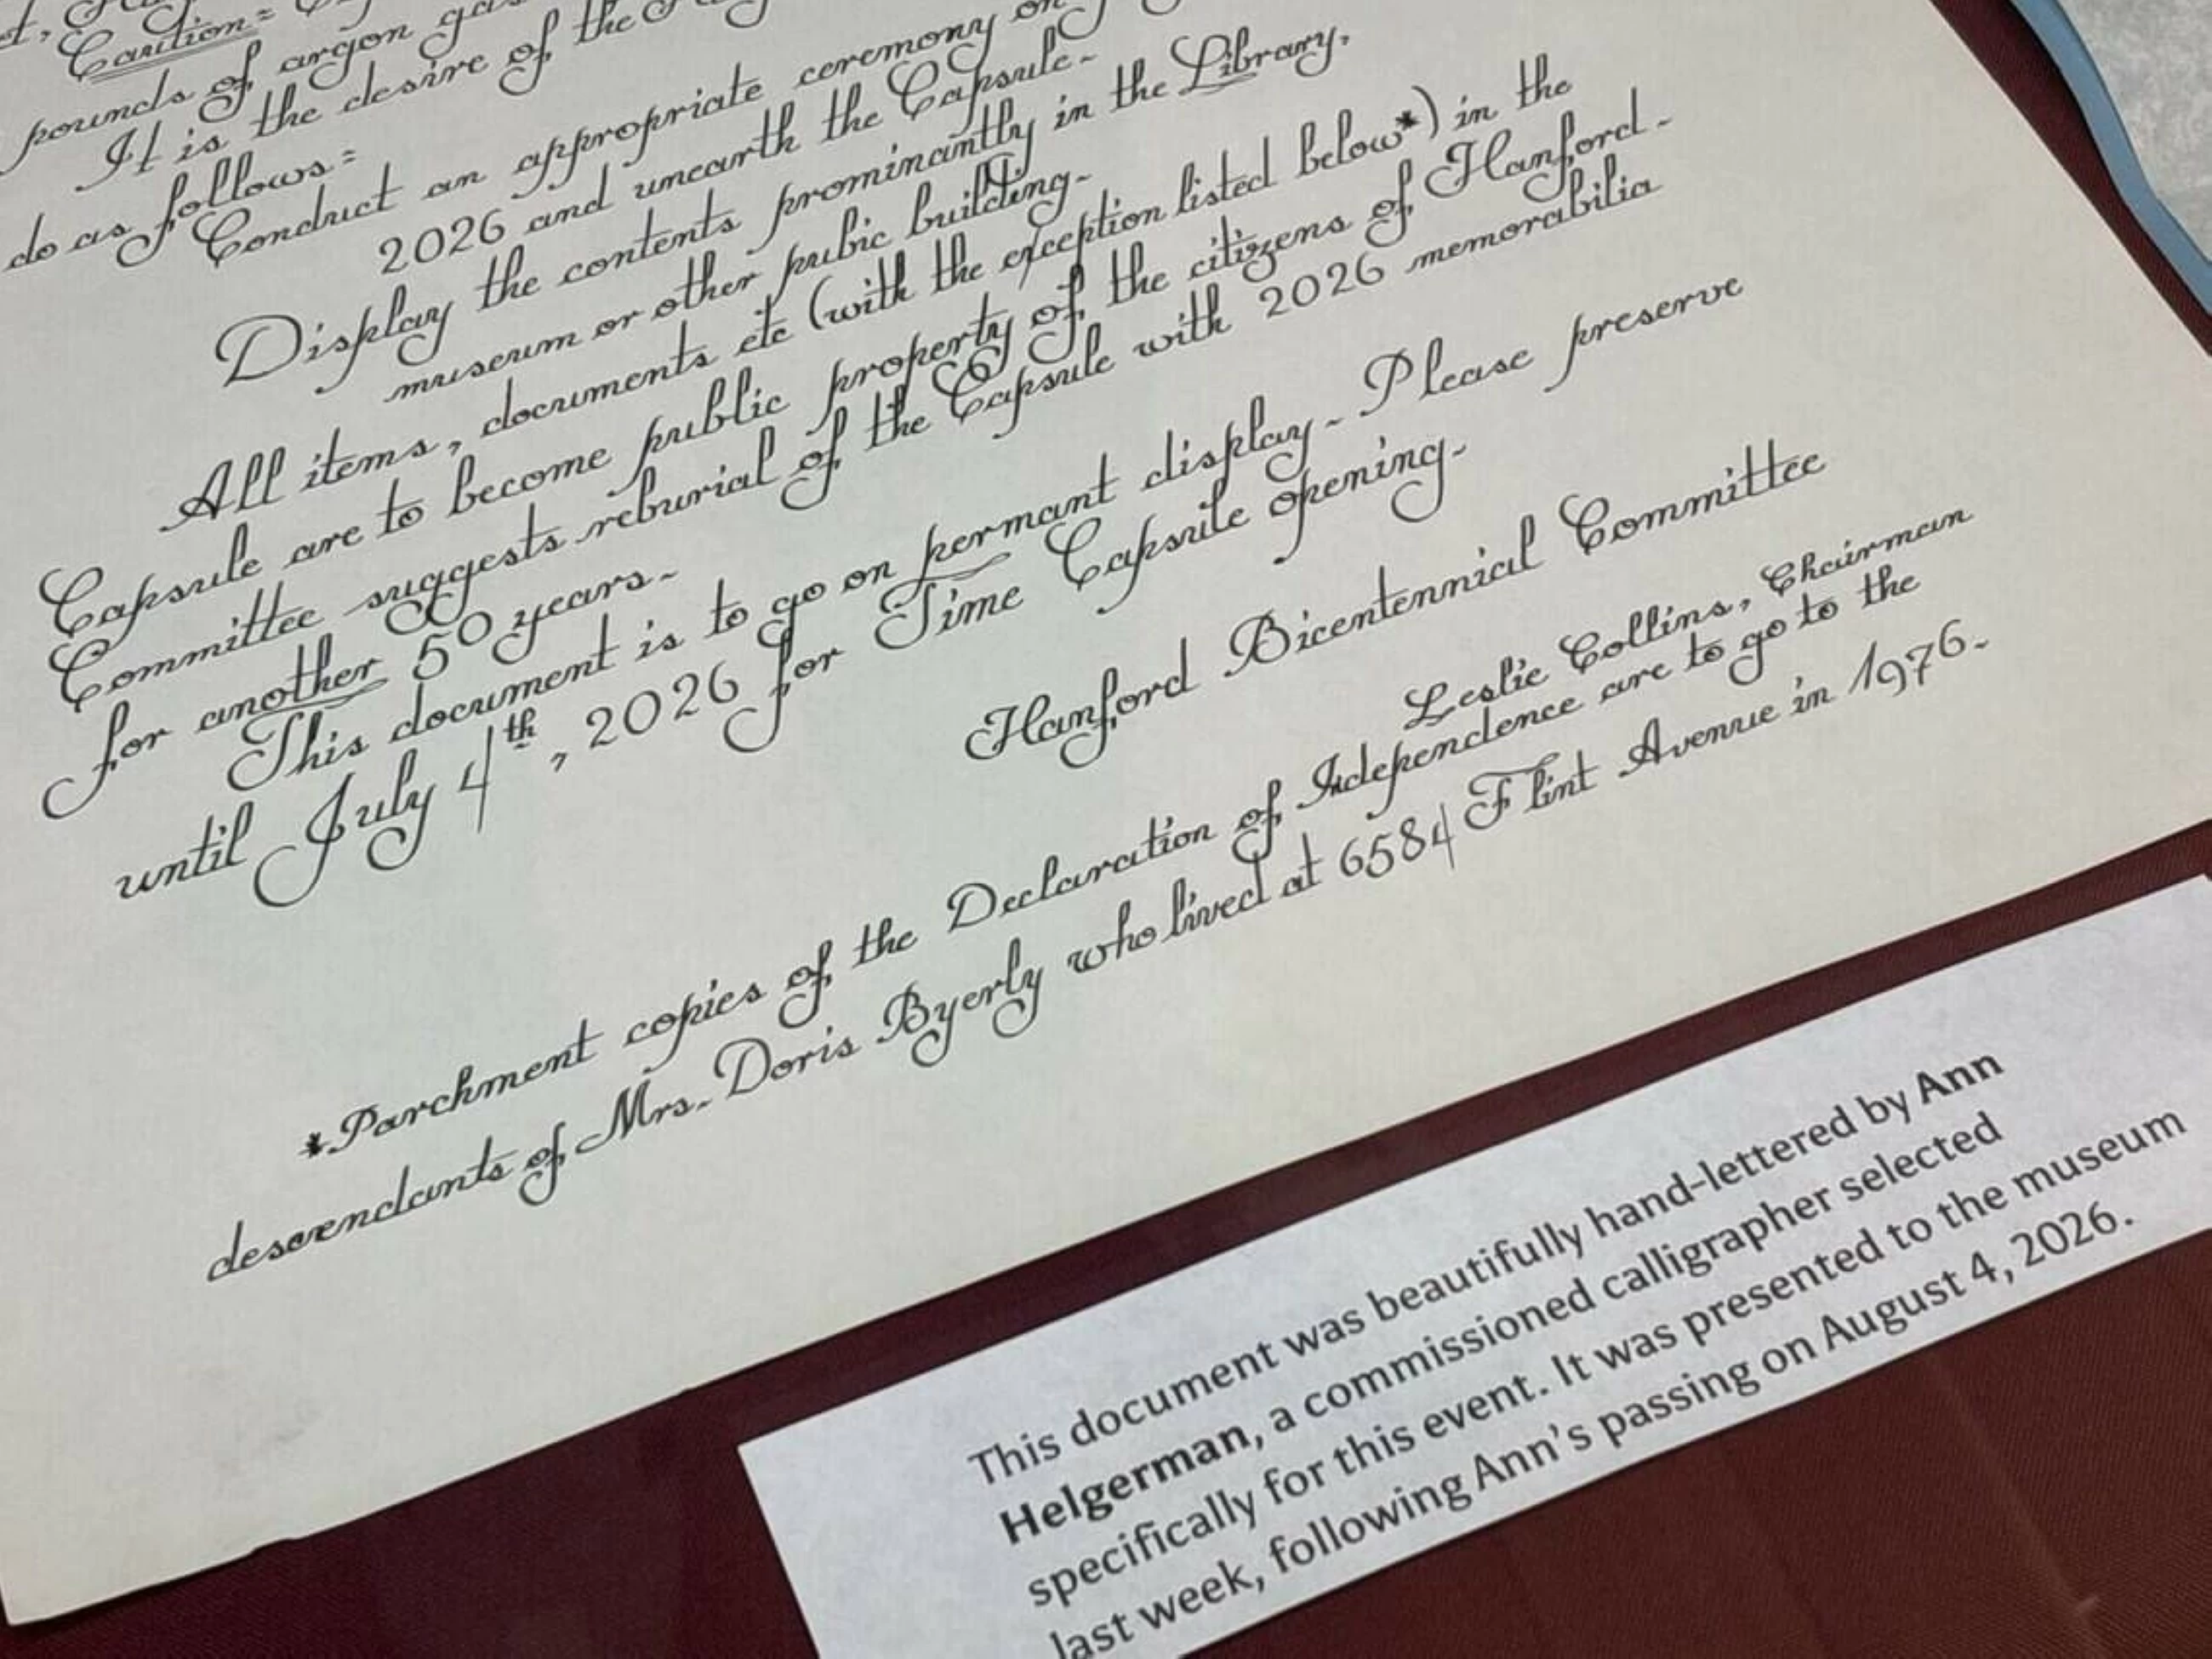 Caution=
pounds of argon gas
It is the desire of the
do as follows=
Conduct an appropriate ceremony on
2026 and unearth the Capsule-
Display the contents prominantly in the Library,
museum or other pubic building-
All items, documents etc (with the exception listed below*) in the
Capsule are to become public property of the citizens of Hanford-
Committee suggests reburial of the Capsule with 2026 memorabilia
for another 50 years-
This document is to go on permant display- Please preserve
until July 4th, 2026 for Time Capsule opening-
Hanford Bicentennial Committee
Leslie Collins, Chairman
*Parchment copies of the Declaration of Independence are to go to the
descendants of Mrs- Doris Byerly who lived at 6584 Flint Avenue in 1976-
This document was beautifully hand-lettered by Ann
Helgerman, a commissioned calligrapher selected
specifically for this event. It was presented to the museum
last week, following Ann's passing on August 4, 2026.